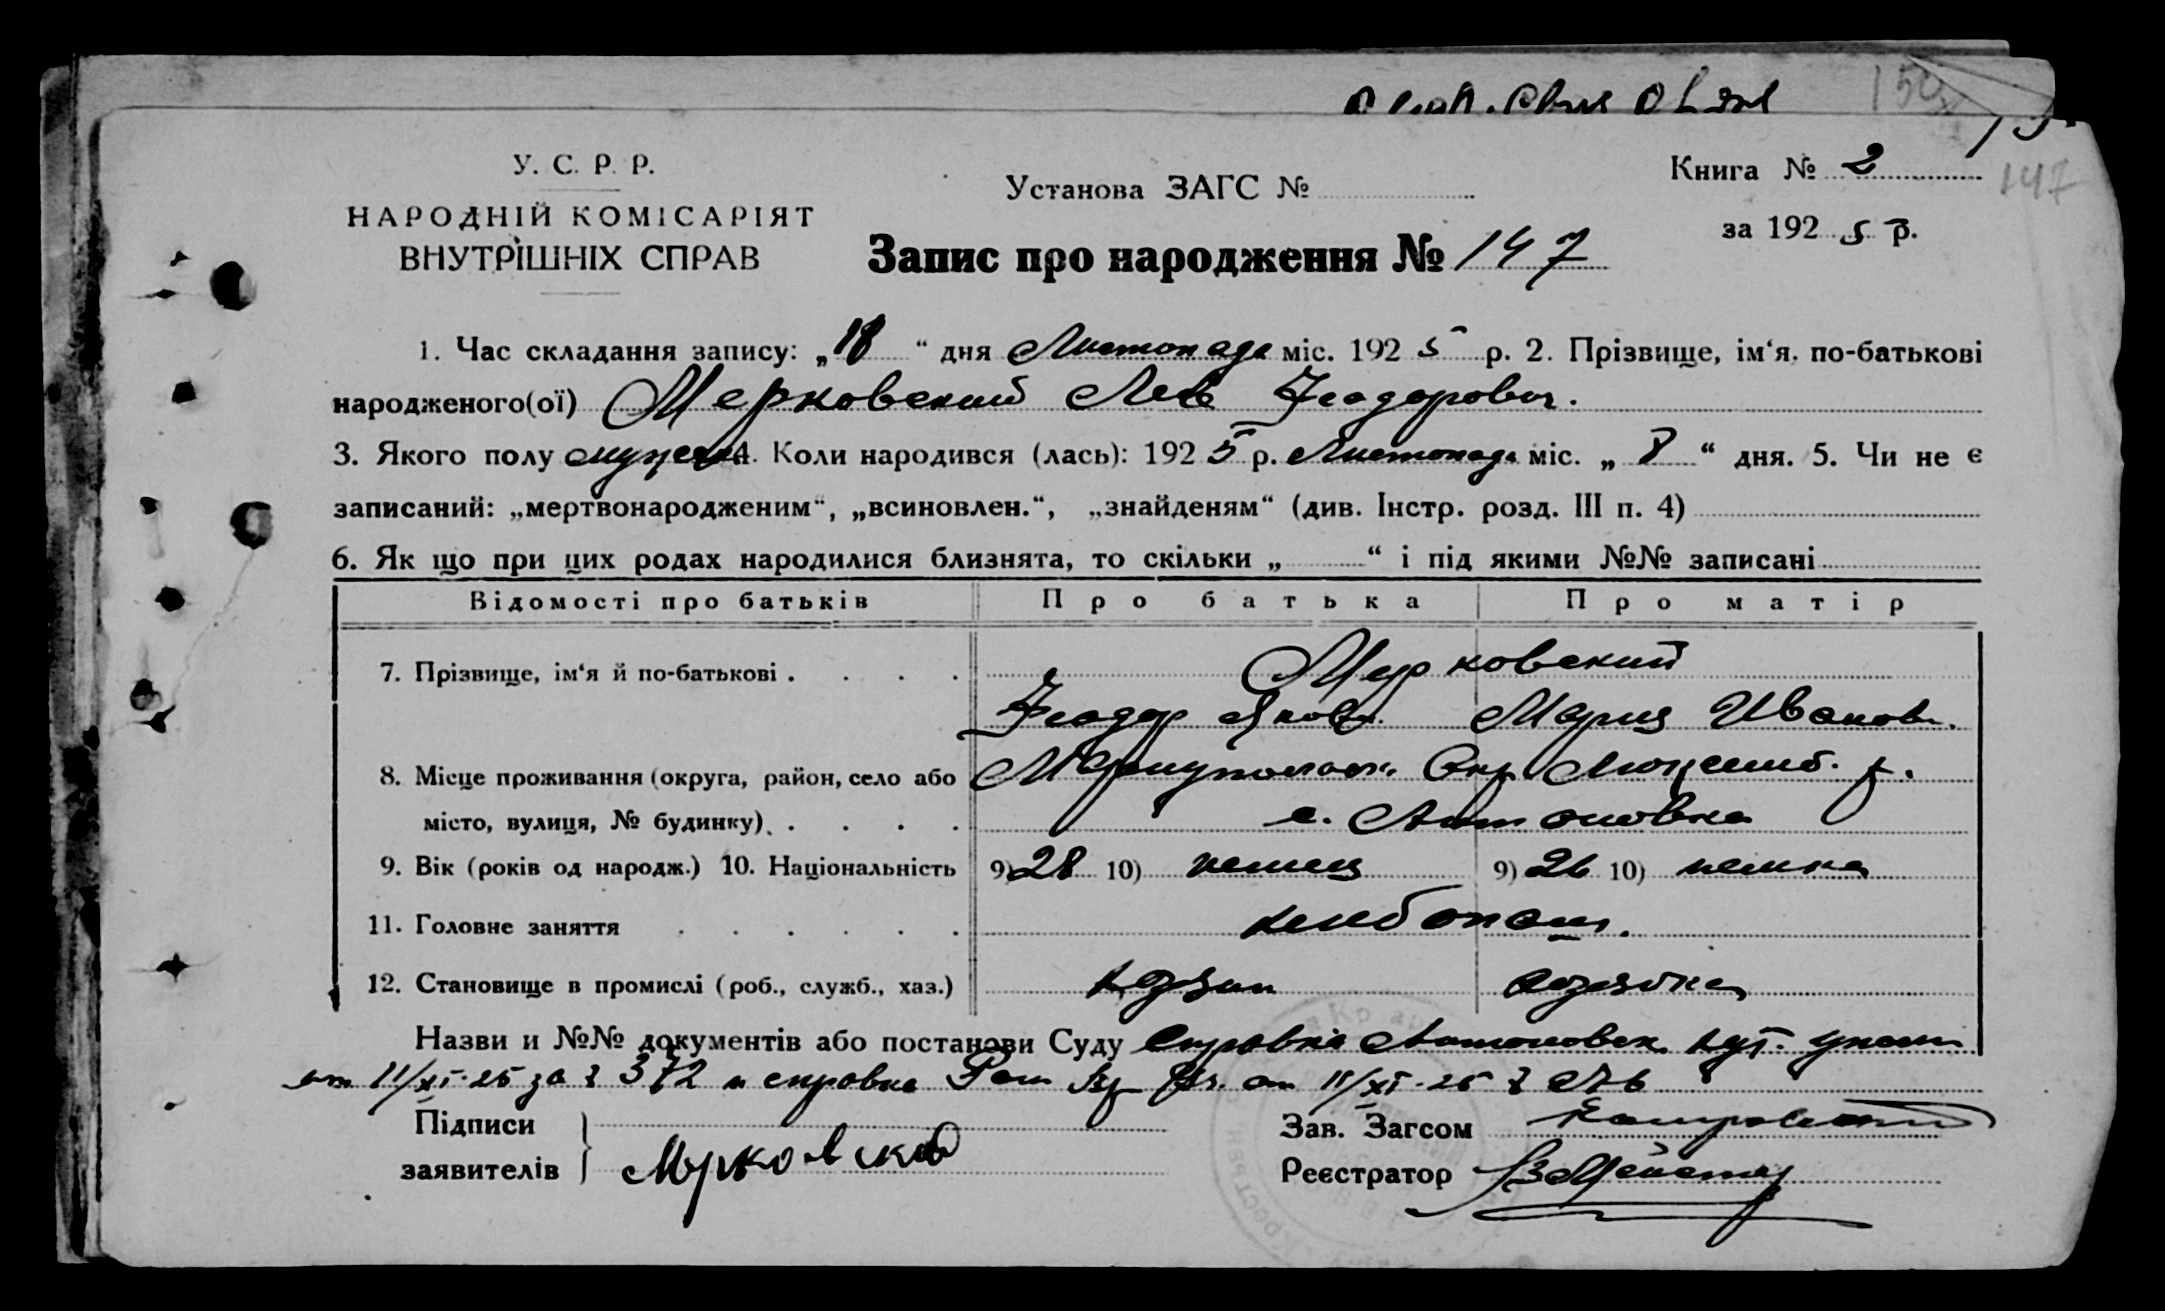 У. С. Р. Р.
НАРОДНІЙ КОМІСАРІЯТ
ВНУТРІШНІХ СПРАВ
Установа ЗАГС №
Книга № 2
147
за 1925 р.
Запис про народження № 147
1. Час складання запису: „18“ дня Листопада міс. 1925 р. 2. Прізвище, ім‘я, по-батькові
народженого(ої) Мерковский Лев Феодорович.
3. Якого полу мужск. 4. Коли народився (лась): 1925 р. Листопада міс. „8“ дня. 5. Чи не є
записаний: „мертвонародженим“, „всиновлен.“, „знайденям“ (див. Інстр. розд. III п. 4)
6. Як що при цих родах народилися близнята, то скільки „ “ і під якими №№ записані
Відомості про батьків Про батька Про матір
7. Прізвище, ім‘я й по-батькові . . . . Мерковский
Феодор Яковл. Мария Иванов.
8. Місце проживання (округа, район, село або Мариупольск. Окр. Люксемб. р.
місто, вулиця, № будинку) . . . . с. Антоновка
9. Вік (років од народж.) 10. Національність 9) 28 10) немец 9) 26 10) немка
11. Головне заняття . . . . . . хлебопаш.
12. Становище в промислі (роб., служб., хаз.) хозяин хозяйка
Назви и №№ документів або постанови Суду Справка Антоновск.
от 11/XI-25 за № 372 и справка от 11/XI-25
Підписи
заявителів Мерковский
Зав. Загсом
Реєстратор